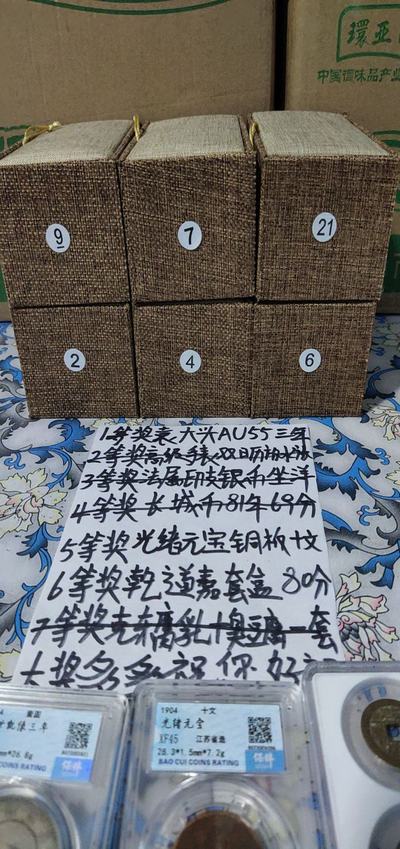 環亚
中国调味品产业
9
7
21
2
4
6
1等奖袁大头AU55三年
2等奖高级手表双日历防水
3等奖法属印支银币坐洋
4等奖长城币81年69分
5等奖光绪元宝铜板十文
6等奖乾道嘉套盒80分
7等奖克东腐乳十臭豆腐一套
大奖多多祝你好
壹圆
三年
*26.6g
COINS RATING
保粹
1904 十文
光绪元宝
XF45 江苏省造
28.3*1.5mm*7.2g
BAO CUI COINS RATING
保粹